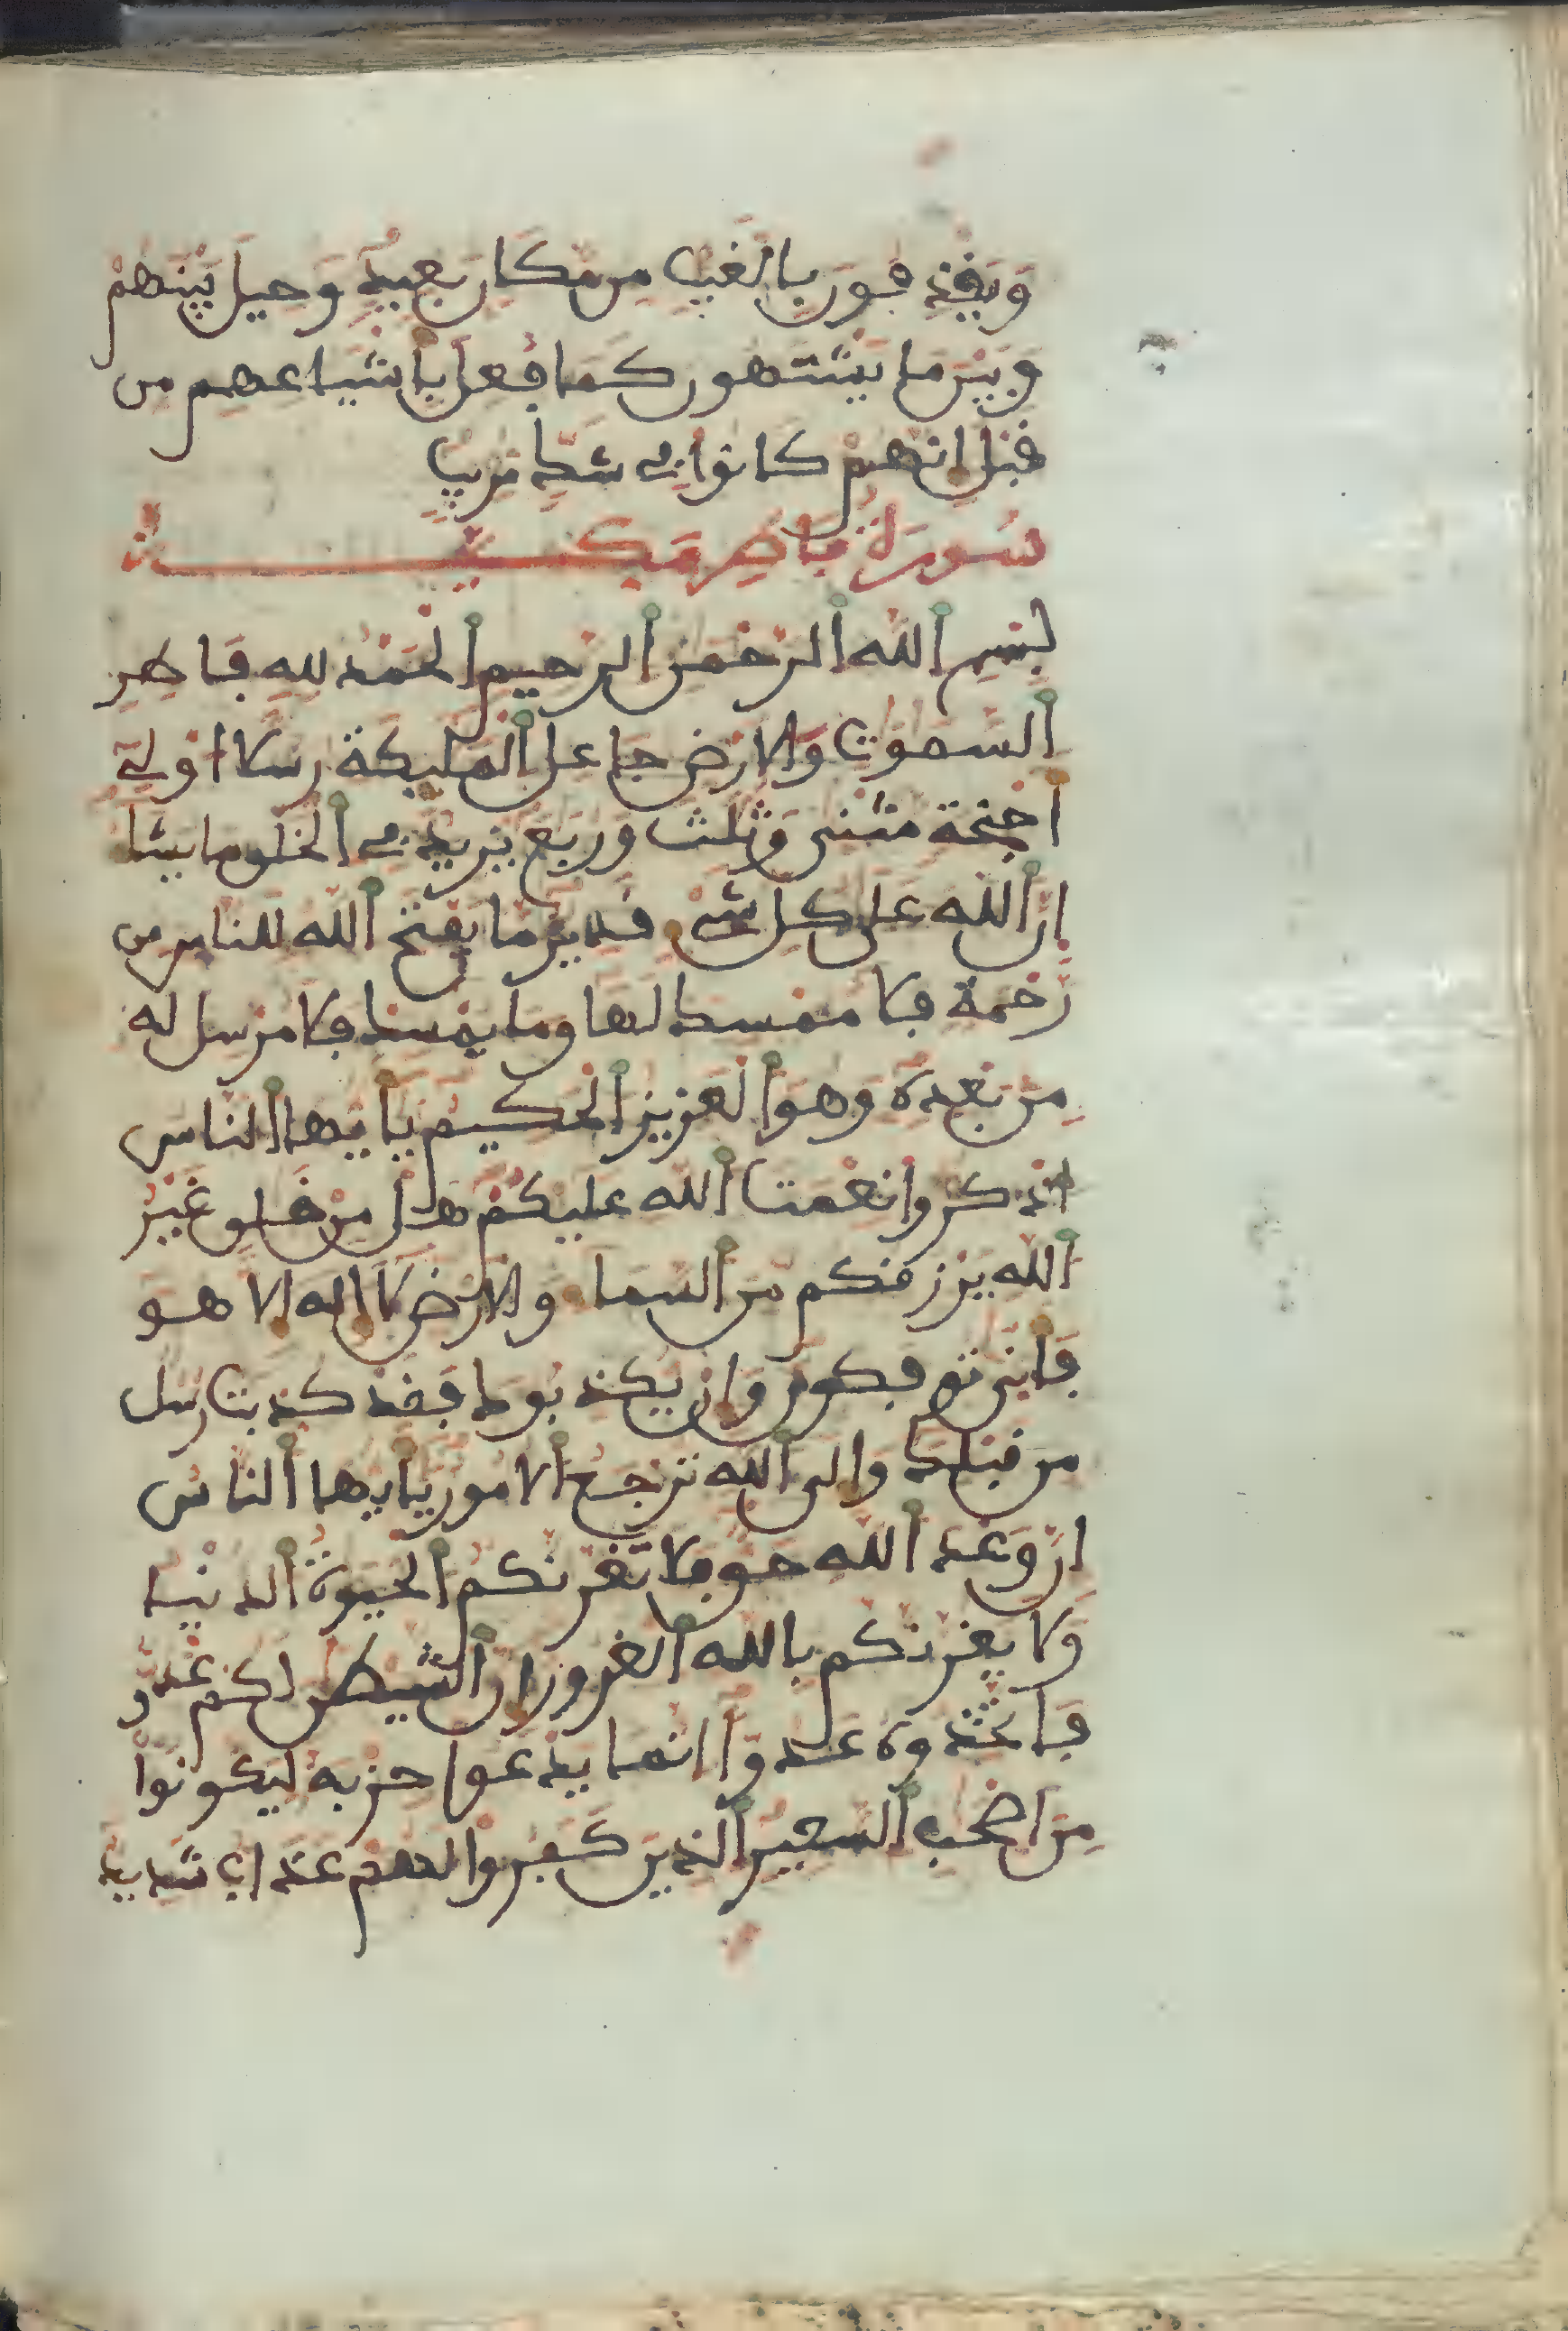 ويقذفون بالغيب من مكان بعيد وحيل بينهم
وبين ما يشتهون كما فعل بأشياعهم من
قبل إنهم كانوا في شك مريب
سورة فاطر مكية
بسم ٱلله ٱلرحمن ٱلرحيم ٱلحمد لله فاطر
ٱلسموت والارض جاعل ٱلمليكة رسلا اولي
أجنحة مثنى وثلث وربع يزيد في ٱلخلق ما يشا
إن ٱلله على كل شي قدير ما يفتح ٱلله للناس من
رحمة فلا ممسك لها وما يمسك فلا مرسل له
من بعده وهو ٱلعزيز ٱلحكيم يأيها ٱلناس
اذكروا نعمت ٱلله عليكم هل من خلق غير
ٱلله يرزقكم من ٱلسما والارض لا إله إلا هو
فأنى توفكون وإن يكذبوك فقد كذبت رسل
من قبلك وإلى ٱلله ترجع ٱلامور يأيها ٱلناس
إن وعد ٱلله حق فلا تغرنكم ٱلحيوة ٱلدنيا
ولا يغرنكم بالله ٱلغرور إن ٱلشيطن لكم عدو
فاتخذوه عدوا إنما يدعوا حزبه ليكونوا
من أصحب ٱلسعير ٱلذين كفروا لهم عذاب شديد